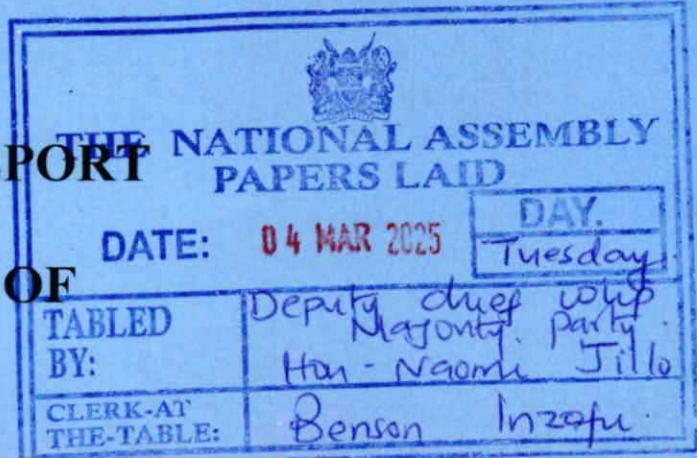 THE NATIONAL ASSEMBLY
PORT
PAPERS LAID
DATE: 04 MAR 2025
DAY.
Tuesday.
OF
TABLED BY:
Deputy chief whip
Majority party.
Hon - Naomi Jillo
CLERK-AT THE-TABLE:
Benson Inzofu.